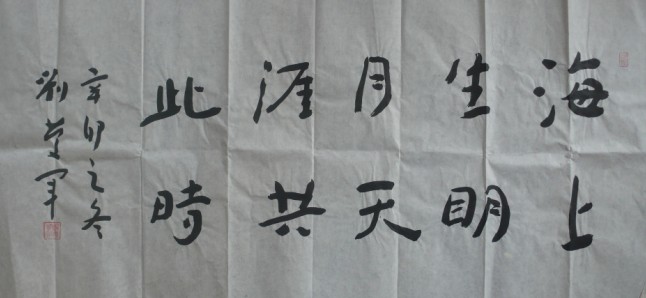 海上
生明
月天
涯共
此時
辛卯之冬
劉